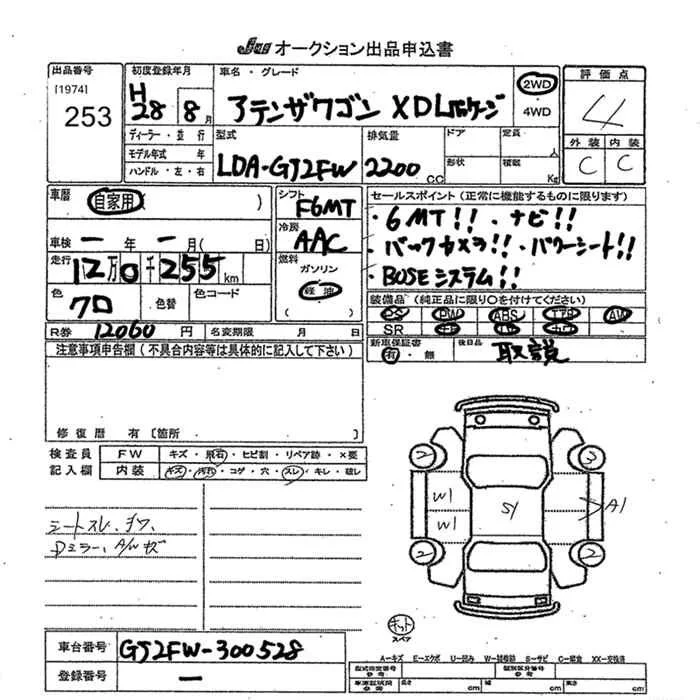 JU オークション出品申込書
出品番号
[1974]
253
初度登録年月
H
28 8月
ディーラー・並行
モデル年式 年
ハンドル・左・右
車名・グレード
アテンザワゴン XDLパッケージ
2WD
・
4WD
型式
LDA-GJ2FW
排気量
2200 CC
ドア
形状
定員 人
積載 Kg
評価点
4
外装 内装
C C
車歴
自家用 ( )
車検 ー 年 ー 月( 日)
走行
12万0千255 km
色
クロ
色替
色コード
R券 12060 円
名変期限 月 日
シフト
F6MT
冷房
AAC
燃料
ガソリン
軽油
( )
セールスポイント(正常に機能するものに限ります)
・6MT!! ・ナビ!!
・バックカメラ!! ・パワーシート!!
・BOSEシステム!!
装備品(純正品に限り○を付けてください)
PS PW ABS エアB AW
SR ナビ TV カワ
新車保証書
有・無
後日品
取説
注意事項申告欄(不具合内容等は具体的に記入して下さい)
修復歴 有[箇所
検査員
記入欄
FW キズ・飛石・ヒビ割・リペア跡・×要
内装 キズ・汚れ・コゲ・穴・スレ・キレ・破レ
シートスレ、シワ、
Dミラー、A/Wキズ
2 3
W1
W1
S/
A1
2 2
キット
スペア
A-キズ E-エクボ U-凹み W-補修跡 S-サビ C-腐食 XX-交換済
車台番号 GJ2FW-300528
登録番号 ー
型式指定番号
参考
類別区分番号
参考
長さ cm
幅 cm
高さ cm